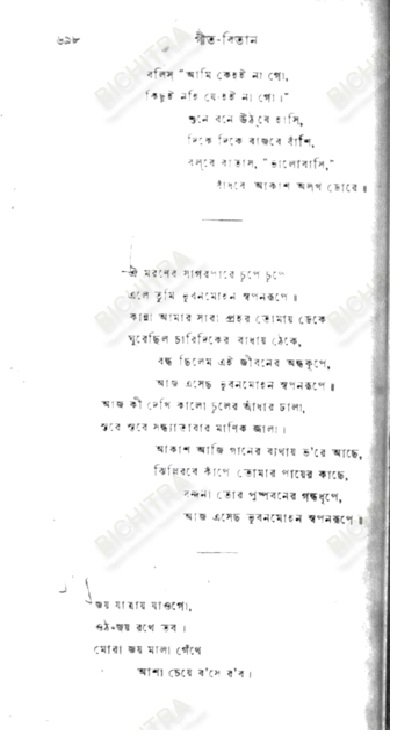 ৬৯৮ গীত-বিতান
বলিস্ "আমি কেহই না গো,
কিছুই নহি যে-হই না গো।"
শুনে বনে উঠ্‌বে হাসি,
দিকে দিকে বাজবে বাঁশি,
বল্‌বে বাতাস, "ভালোবাসি,"
বাঁধবে আকাশ অলখ ডোরে॥
ঐ মরণের সাগরপারে চুপে চুপে
এলে তুমি ভুবনমোহন স্বপনরূপে॥
কান্না আমার সারা প্রহর তোমায় ডেকে
ঘুরেছিল চারিদিকের বাধায় ঠেকে,
বন্ধ ছিলেম এই জীবনের অন্ধকূপে,
আজ এসেছ ভুবনমোহন স্বপনরূপে॥
আজ কী দেখি কালো চুলের আঁধার ঢালা,
স্তরে স্তরে সন্ধ্যাতারার মাণিক জ্বালা।
আকাশ আজি গানের ব্যথায় ভ'রে আছে,
ঝিল্লিরবে কাঁপে তোমার পায়ের কাছে,
বন্দনা তোর পুষ্পবনের গন্ধধূপে,
আজ এসেছ ভুবনমোহন স্বপনরূপে॥
জয় যাত্রায় যাওগো,
ওঠ-জয় রথে তব।
মোরা জয় মালা গেঁথে
আশা চেয়ে ব'সে র'ব।
BICHITRA
BICHITRA
BICHITRA
BICHITRA
BICHITRA
BICHITRA